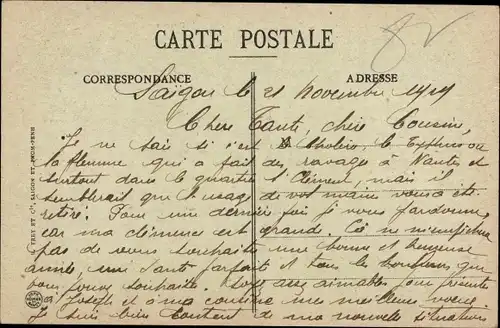 CARTE POSTALE
CORRESPONDANCE
ADRESSE
Saïgon le 21 novembre 1919
Chère Tante, chère Cousine,
Je ne sais si c'est le Choléra, le Typhus ou
la flemme qui a fait des ravages à Nantes et
surtout dans le quartier St Clément, mais il
semblerait que l'usage de vos mains vous a été
retiré. Pour une dernière fois je vous pardonne,
car ma clémence est grande. Ça ne m'empêche
pas de vous souhaiter une bonne et heureuse
année, une santé parfaite et tous les bonheurs que
vous pouvez souhaiter. Soyez assez aimables pour présenter
à Joseph et à ma cousine mes meilleurs voeux.
Je suis bien content de ma nouvelle situation